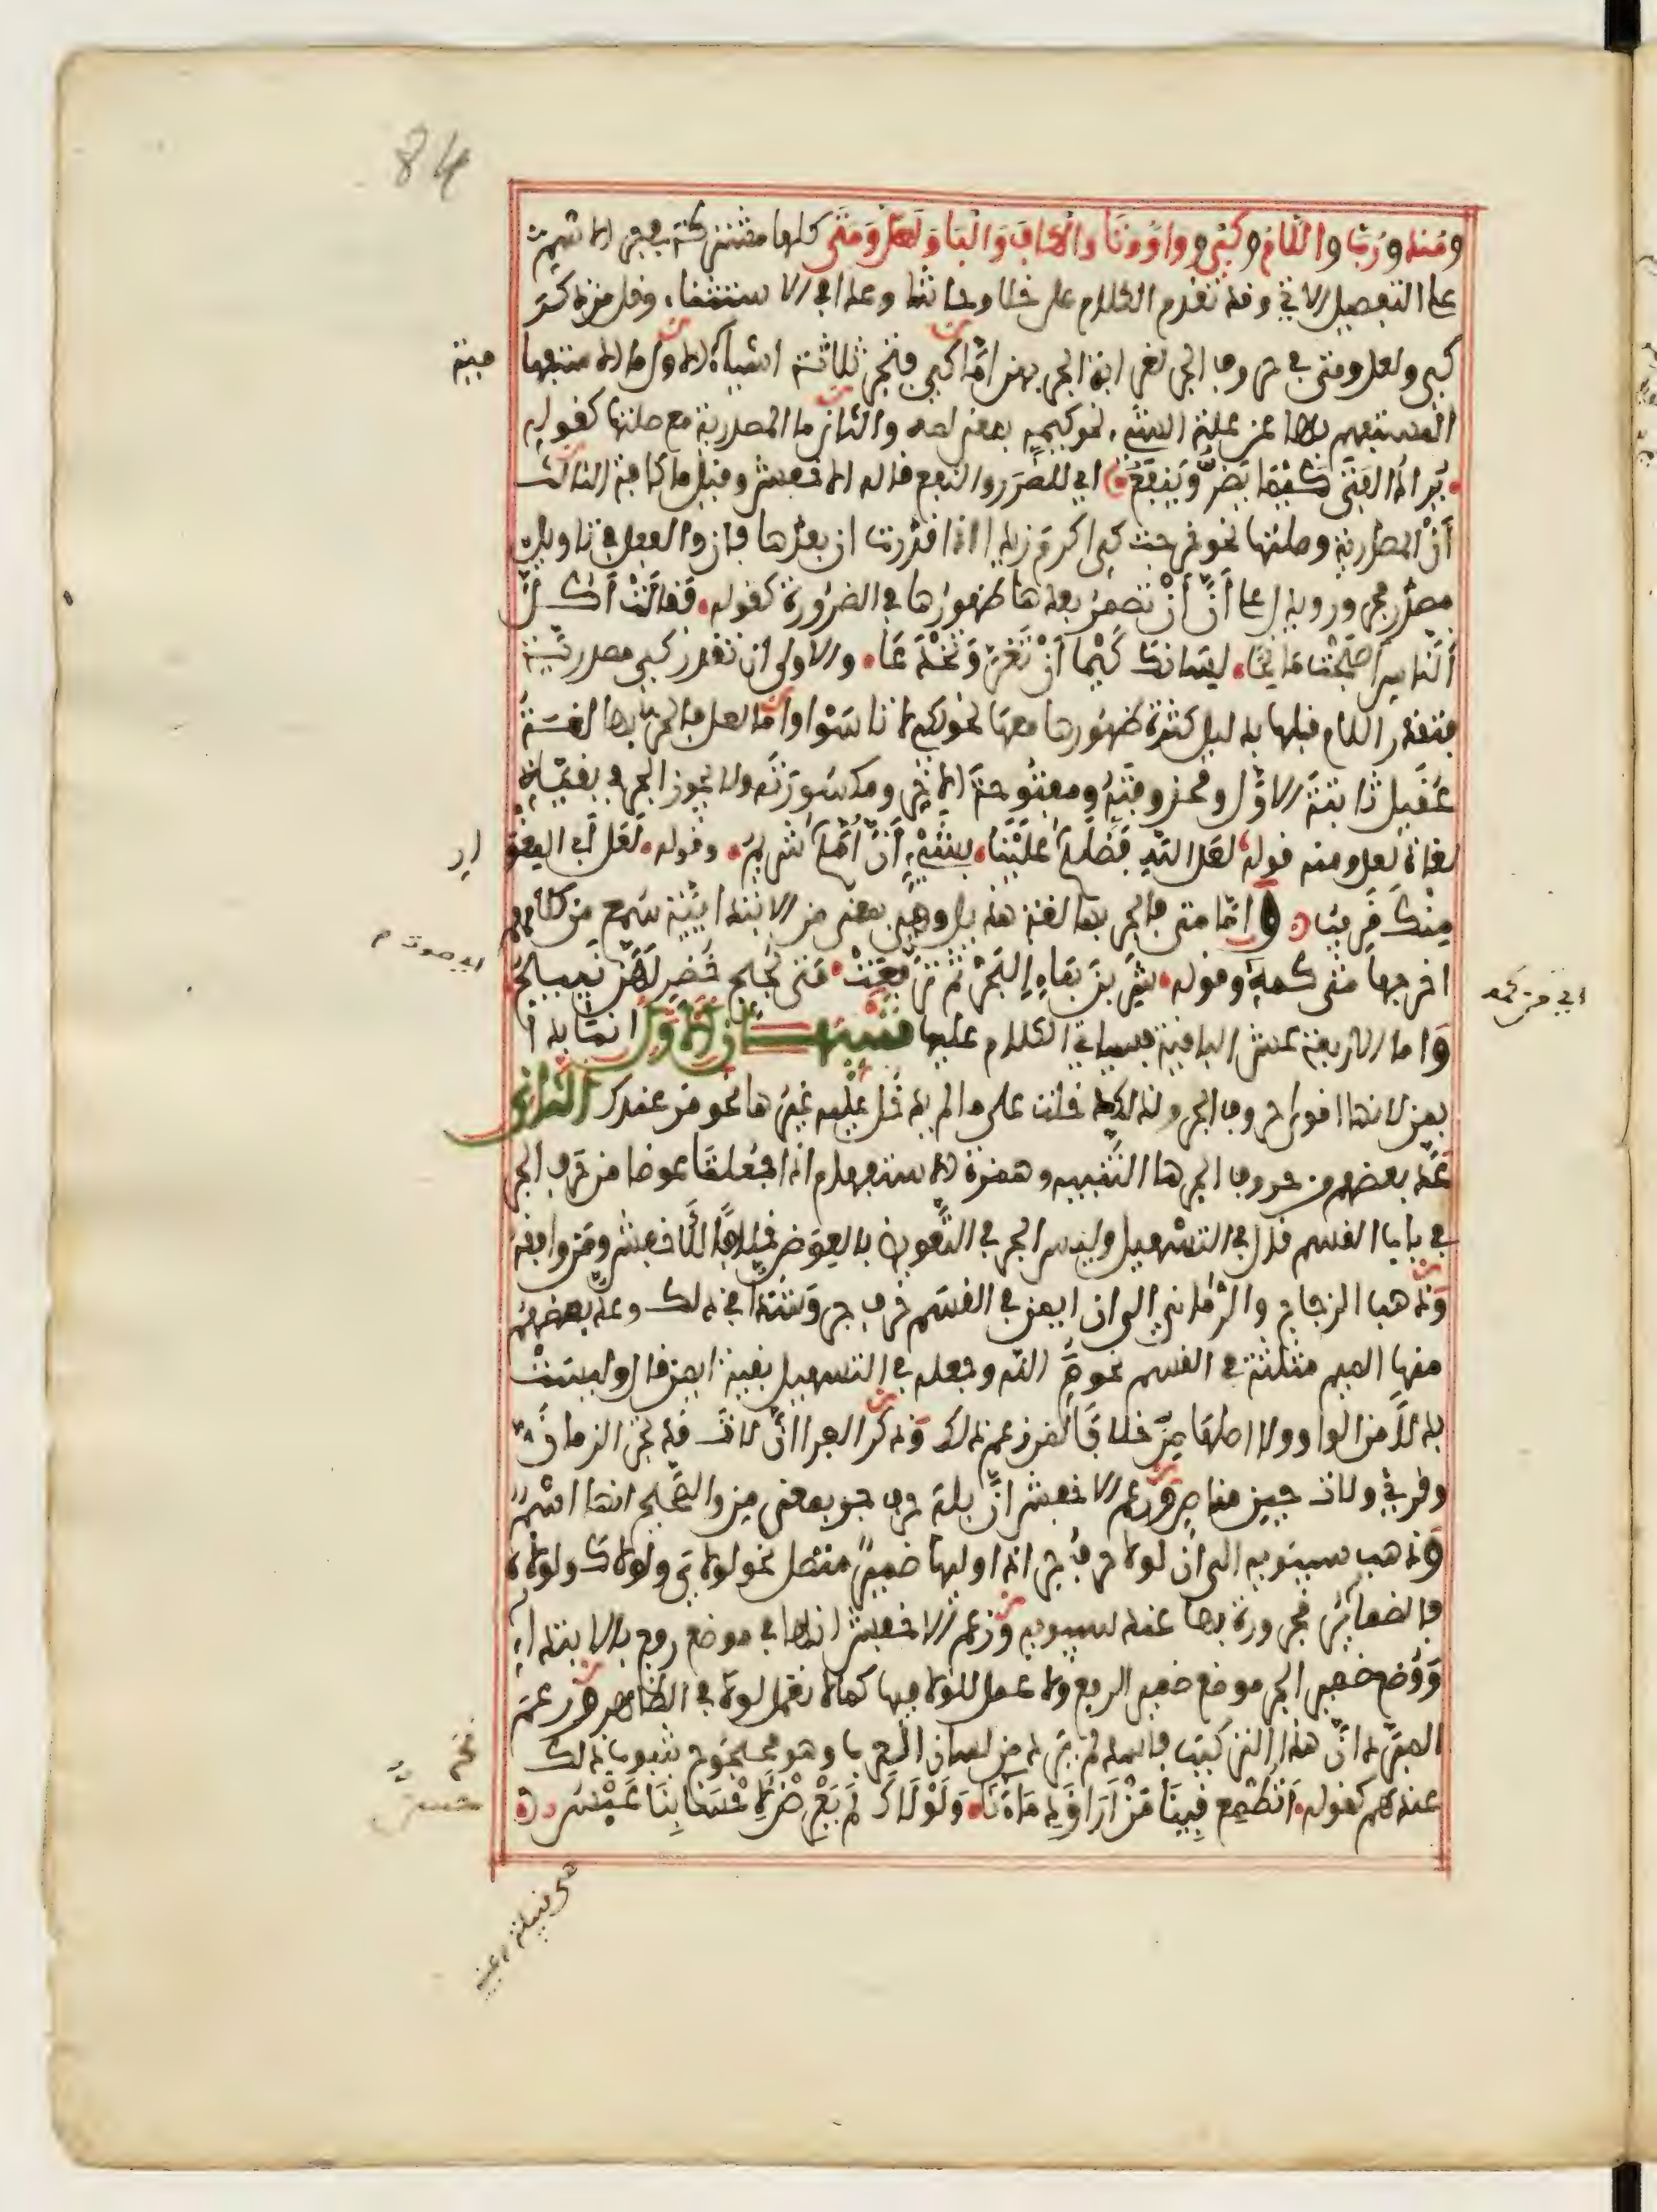 84
ومنذ ورب واللام وكي وواو وتا والكاف والبا ولعل ومتى كلها مشتركة في جر الاسم
على التفصيل الاتي وقد تقدم الكلام على خلا وحاشا وعدا في الاستثنا، وقل من ذكر
كي ولعل ومتى في حروف الجر لغرابة الجر بهن اما كي فتجر ثلاثة اشياء الاول ما الاستفهامية
المستفهم بها عن علة الشيء نحو كيمه بمعنى لمه والثاني ما المصدرية مع صلتها كقوله
يراد الفتى كيما يضر وينفع اي للضر والنفع قاله الاخفش وقيل ما كافة الثالث
أن المصدرية وصلتها نحو جئت كي اكرم زيدا اذا قدرت ان بعدها فان والفعل في تاويل
مصدر مجرور ويدل على أن أن تضمر بعدها ظهورها في الضرورة كقوله فقالت أكل
الناس أصبحت مانحا لسانك كيما أن تغر وتخدعا والاولى ان تقدر كي مصدرية
فتقدر اللام قبلها بدليل كثرة ظهورها معها نحو لكيلا تاسوا واما لعل فالجر بها لغة
عقيل ثابتة الاول ومحذوفته ومفتوحة الاخر ومكسورته ولا يجوز الجر في بقية
لغات لعل ومنه قوله لعل الله فضلكم علينا بشيء أن أمكم شريم وقوله لعل أبي المغوار
منك قريب واما متى فالجر بها لغة هذيل وهي بمعنى من الابتدائية سمع من كلامهم
اخرجها متى كمه وقوله شربن بماء البحر ثم ترفعت متى لجج خضر لهن نئيج
اي من كمه
اي صوت م
واما الاربعة عشر الباقية فسياتي الكلام عليها تنبيهان الاول انما بدا
بمن لانها اقوى حروف الجر ولذلك دخلت على ما لم يدخل عليه غيرها نحو من عندك الثاني
عد بعضهم من حروف الجر ها التنبيه وهمزة الاستفهام اذا جعلتا عوضا من حرف الجر
في باب القسم قال في التسهيل وليس الجر في التعويض بالعوض خلافا للاخفش ومن وافقه
وذهب الزجاج والرماني الى ان ايمن في القسم حرف جر وشذا في ذلك وعد بعضهم
منها الميم مثلثة في القسم نحو م الله وجعله في التسهيل بقية ايمن قال وليست
بدلا من الواو ولا اصلها من خلافا لمن زعم ذلك وذكر الفرا ان لات قد تجر الزمان
وقرئ ولات حين مناص وزعم الاخفش ان بله حرف جر بمعنى من والصحيح انها اسم
وذهب سيبويه الى ان لولا حرف جر اذا وليها ضمير متصل نحو لولاي ولولاك ولولاه
فالضمائر مجرورة بها عند سيبويه وزعم الاخفش انها في موضع رفع بالابتداء
ووضع ضمير الجر موضع ضمير الرفع ولا عمل للولا فيها كما لا تعمل لولا في الظاهر وزعم
المبرد ان هذا التركيب فاسد لم يرد من لسان العرب وهو محجوج بثبوت ذلك
عندهم كقوله أتطمع فينا من أراق دماءنا ولولاك لم يعرض لاحسابنا حسن